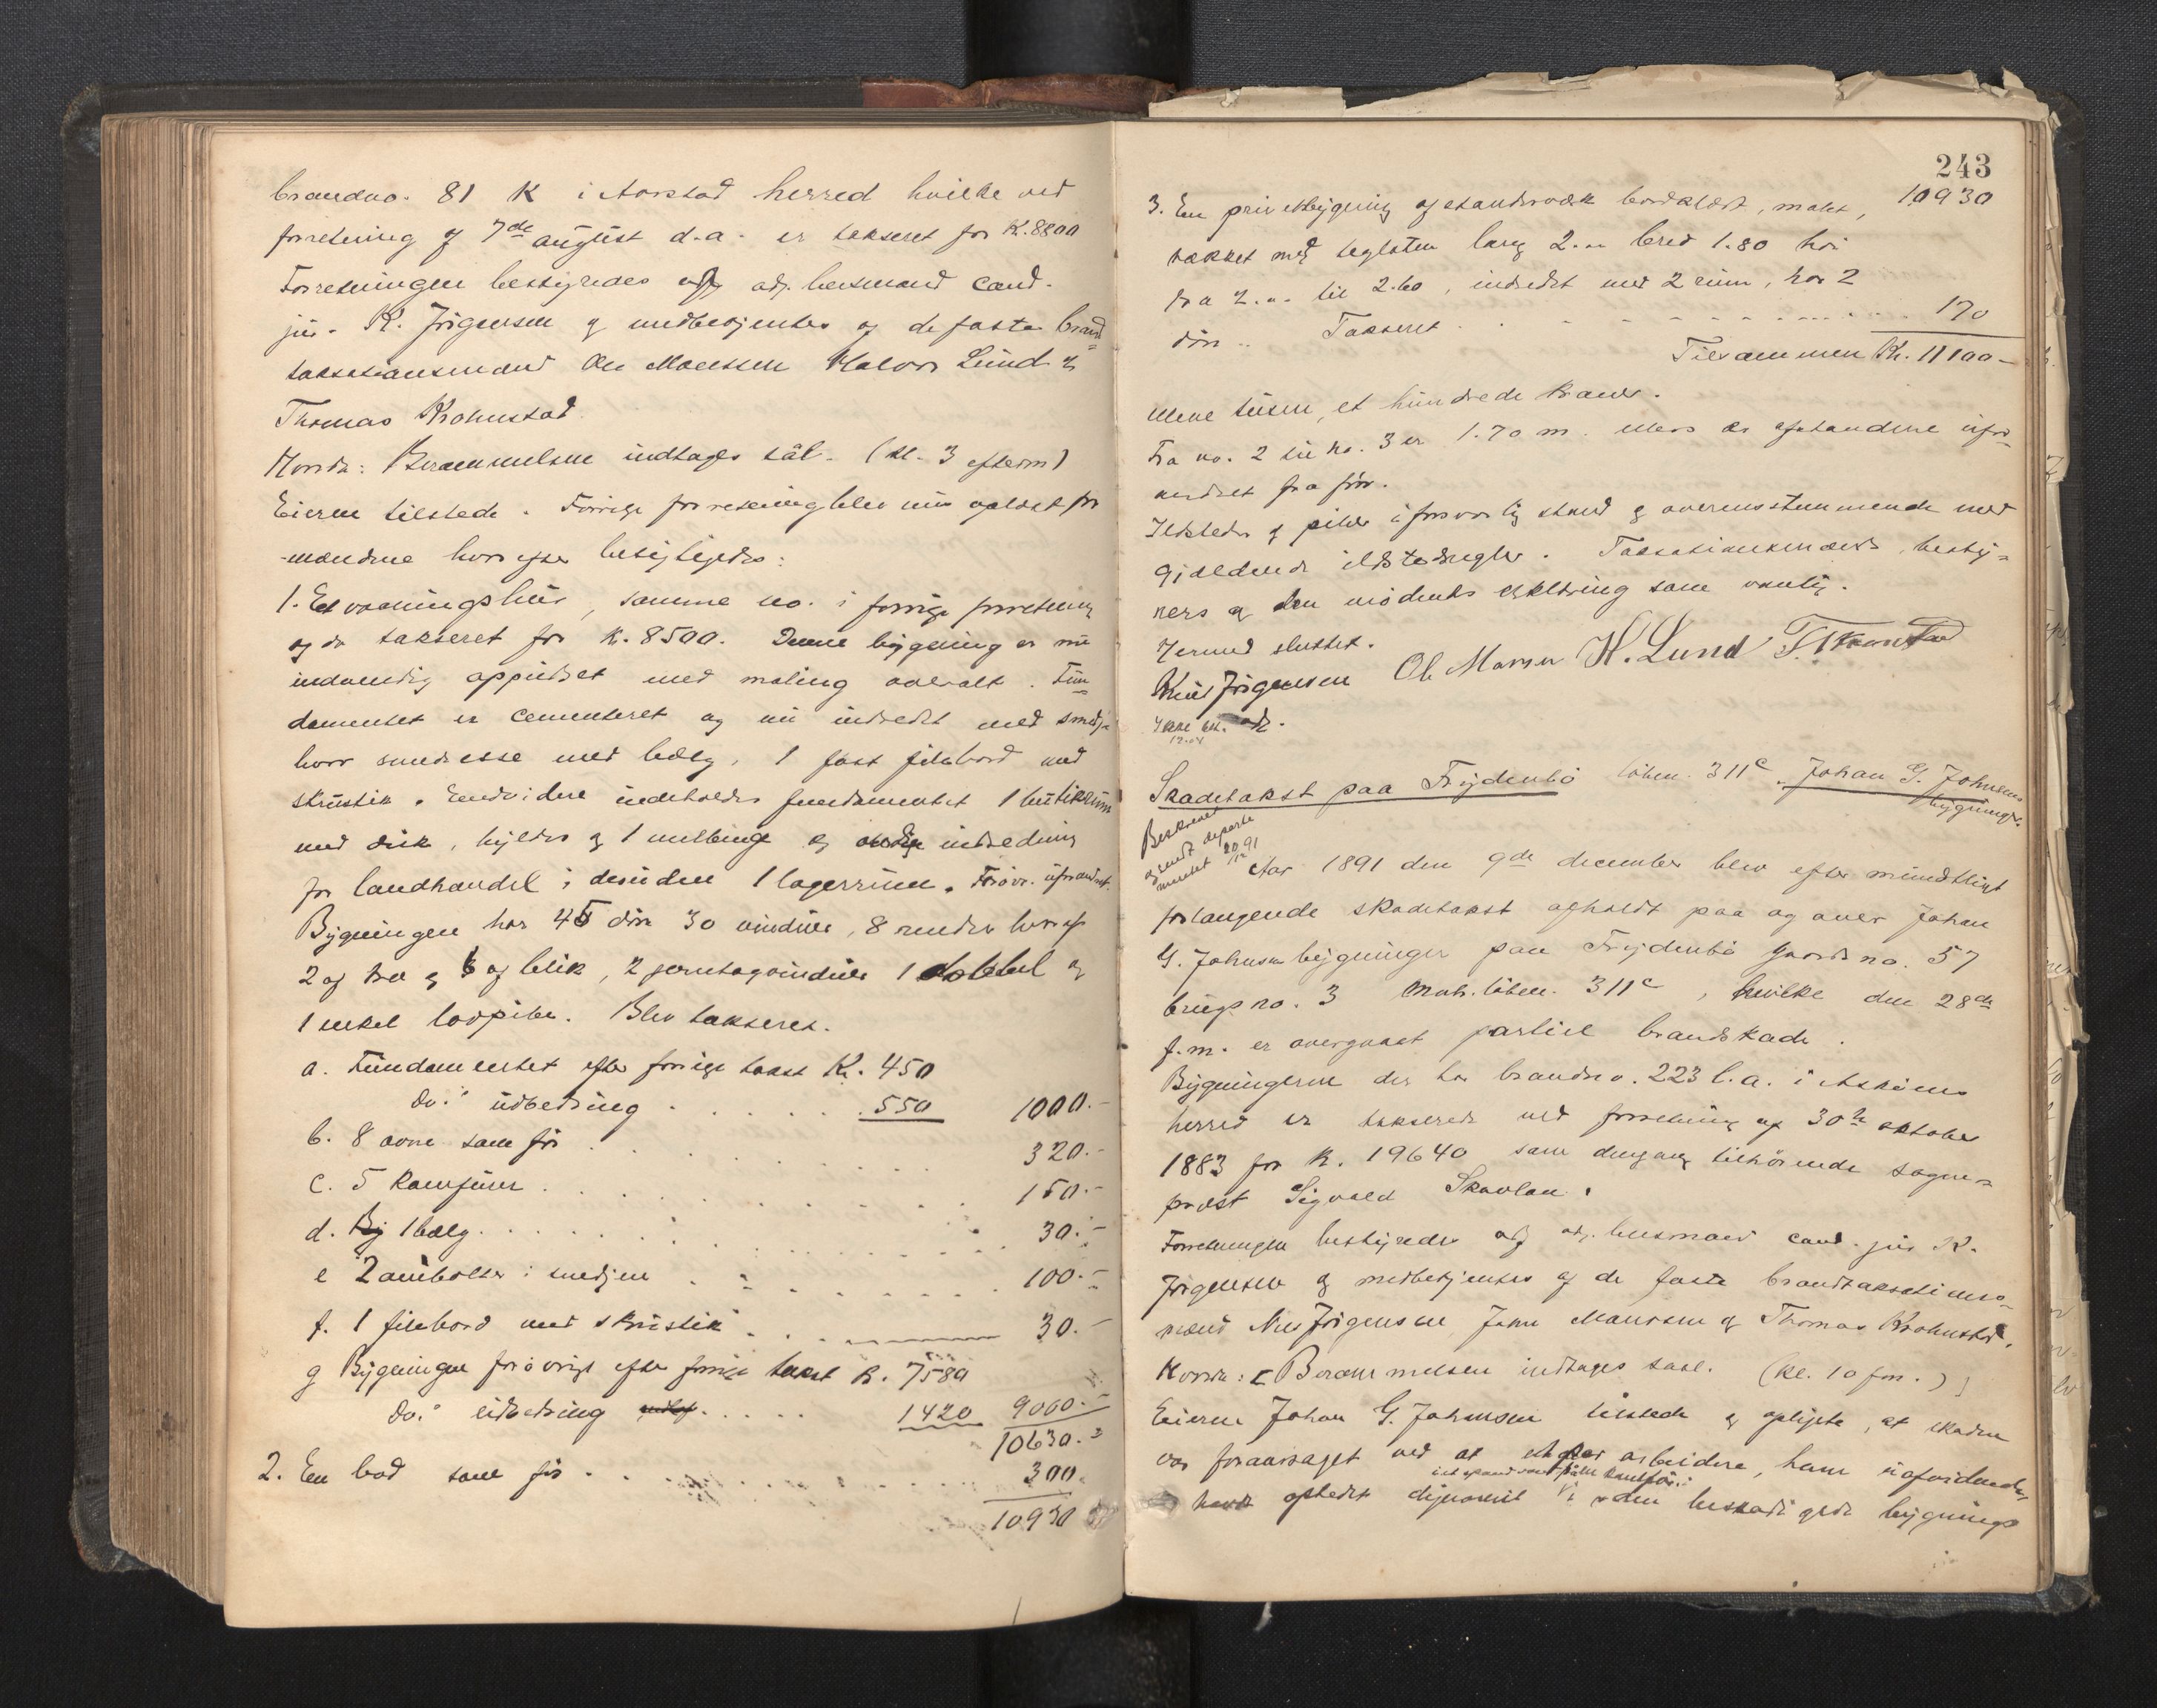 brandno. 81 K i Aarstad herred hvilke ved
forretning af 7de august d.a. er takseret for K. 8800
Forretningen bestyredes af adj. lensmand cand.
jur. K. Jörgensen og medbetjentes af de faste brand=
taksationsmænd Ole Monssen Halvor Lund &
Thomas Krohnstad.
Hvorda: Berammelsen indtages sål. (kl. 3 efterm)
Eieren tilstede. Forrige forretning blev nu oplæst for
mændene hvorefter besigtigedes:
1. Et vaaningshus, samme no. i forrige forretning
og da takseret for K. 8500. Denne bygning er nu
indvendig oppudset med maling overalt. Fun=
damentet er cementeret og nu indredet med smedje
hvor smedesse med bælg, 1 fast filebord med
skrustik. Endvidere indeholder fundamentet 1 butikrum
med disk, hylder og 1 melbinge og øvrig indredning
for landhandel; desuden 1 lagerrum. Forövr. uforandret.
Bygningen har 45 döre 30 vinduer, 8 render hvoraf
2 af træ og 6 af blik, 2 jerntagvinduer 1 dobbel og
1 enkel lodpibe. Blev takseret.
a. Fundamentet efter forrige takst K. 450
do. " udbedring . . . . . 550 1000.-
b. 8 ovne som för . . . . . 320.-
c. 5 komfurer . . . . . 150.-
d. By 1 bælg . . . . . 30.-
e 2 ambolter i smedjen . . . . . 100.-
f. 1 filebord med skrustik . . . 30.-
g Bygningen forövrigt efter forrige takst K. 7580
do. " udbedring . . . . 1420 9000.-
10630.-
2. En bod som för . . . . . 300.
10930
243
3. En privetbygning af standværk bordklædt, malet, 10930
tækket med teglsten lang 2.m bred 1.80 höi
fra 2.m til 2.60, indredet med 2 rum, har 2
döre .. Takseret . . . . . 170
Tilsammen Kr. 11100-
elleve tusen, et hundrede kroner.
Fra no. 2 til no. 3 er 1.70 m. ellers er afstandene ufor=
andret fra för.
Ildsteder og piber i forsvarlig stand og overensstemmende med
gjældende ildstedregler. Taksationsmænds, besty=
rers og den mödendes erklæring som vanlig.
Hermed sluttet.
Knut Jörgensen Ole Monsen H. Lund T. Kronstad
Ikke bet.
Skadetakst paa Frydenbö löben. 311c, Johan G. Johnsens
bygninger.
Beskrevet
og sendt departe
mentet 20/12 91
Aar 1891 den 9de december blev efter mundtligt
forlangende skadetakst afholdt paa og over Johan
G. Johnsens bygninger paa Frydenbö gaards no. 57
brugs no. 3 matr. löben. 311c, hvilke den 28de
f.m. er overgaaet partiel brandskade.
Bygningerne der har brandno. 223 l.a. i Asköens
herred er takserede ved forretning af 30te oktober
1883 for K. 19640 som dengang tilhörende sogne=
præst Sigvald Skavlan.
Forretningen bestyredes af adj. lensmand cand. jur K.
Jörgensen og medbetjentes af de faste brandtaksations=
mænd Nils Jörgensen, John Monssen og Thomas Krohnstad.
Hvorda: [Berammelsen indtages saal. (kl. 10 fm.)]
Eieren Johan G. Johnsen tilstede og oplyste, at skaden
var foraarsaget ved at et par arbeidere, ham uafvidende,
optedet dynamit i den beskadigede bygnings